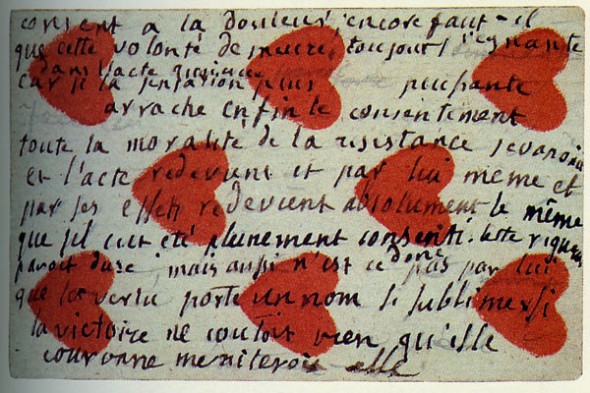 consent a la douleur, encore faut-il
que cette volonté de nuire, toujours regnante
dans l'acte
car si la sensation plus puissante
arrache enfin le consentement
toute la moralité de la resistance sevanoui
et l'acte redevient et par lui meme et
par ses effets redevient absolument le même
que sil eut été plenement consenti. cette rigueur
paroit dure, mais aussi n'est ce donc pas par lui
que la vertu porte un nom si sublime, si
la victoire ne coutoit rien qu'elle
couronne meriteroit elle